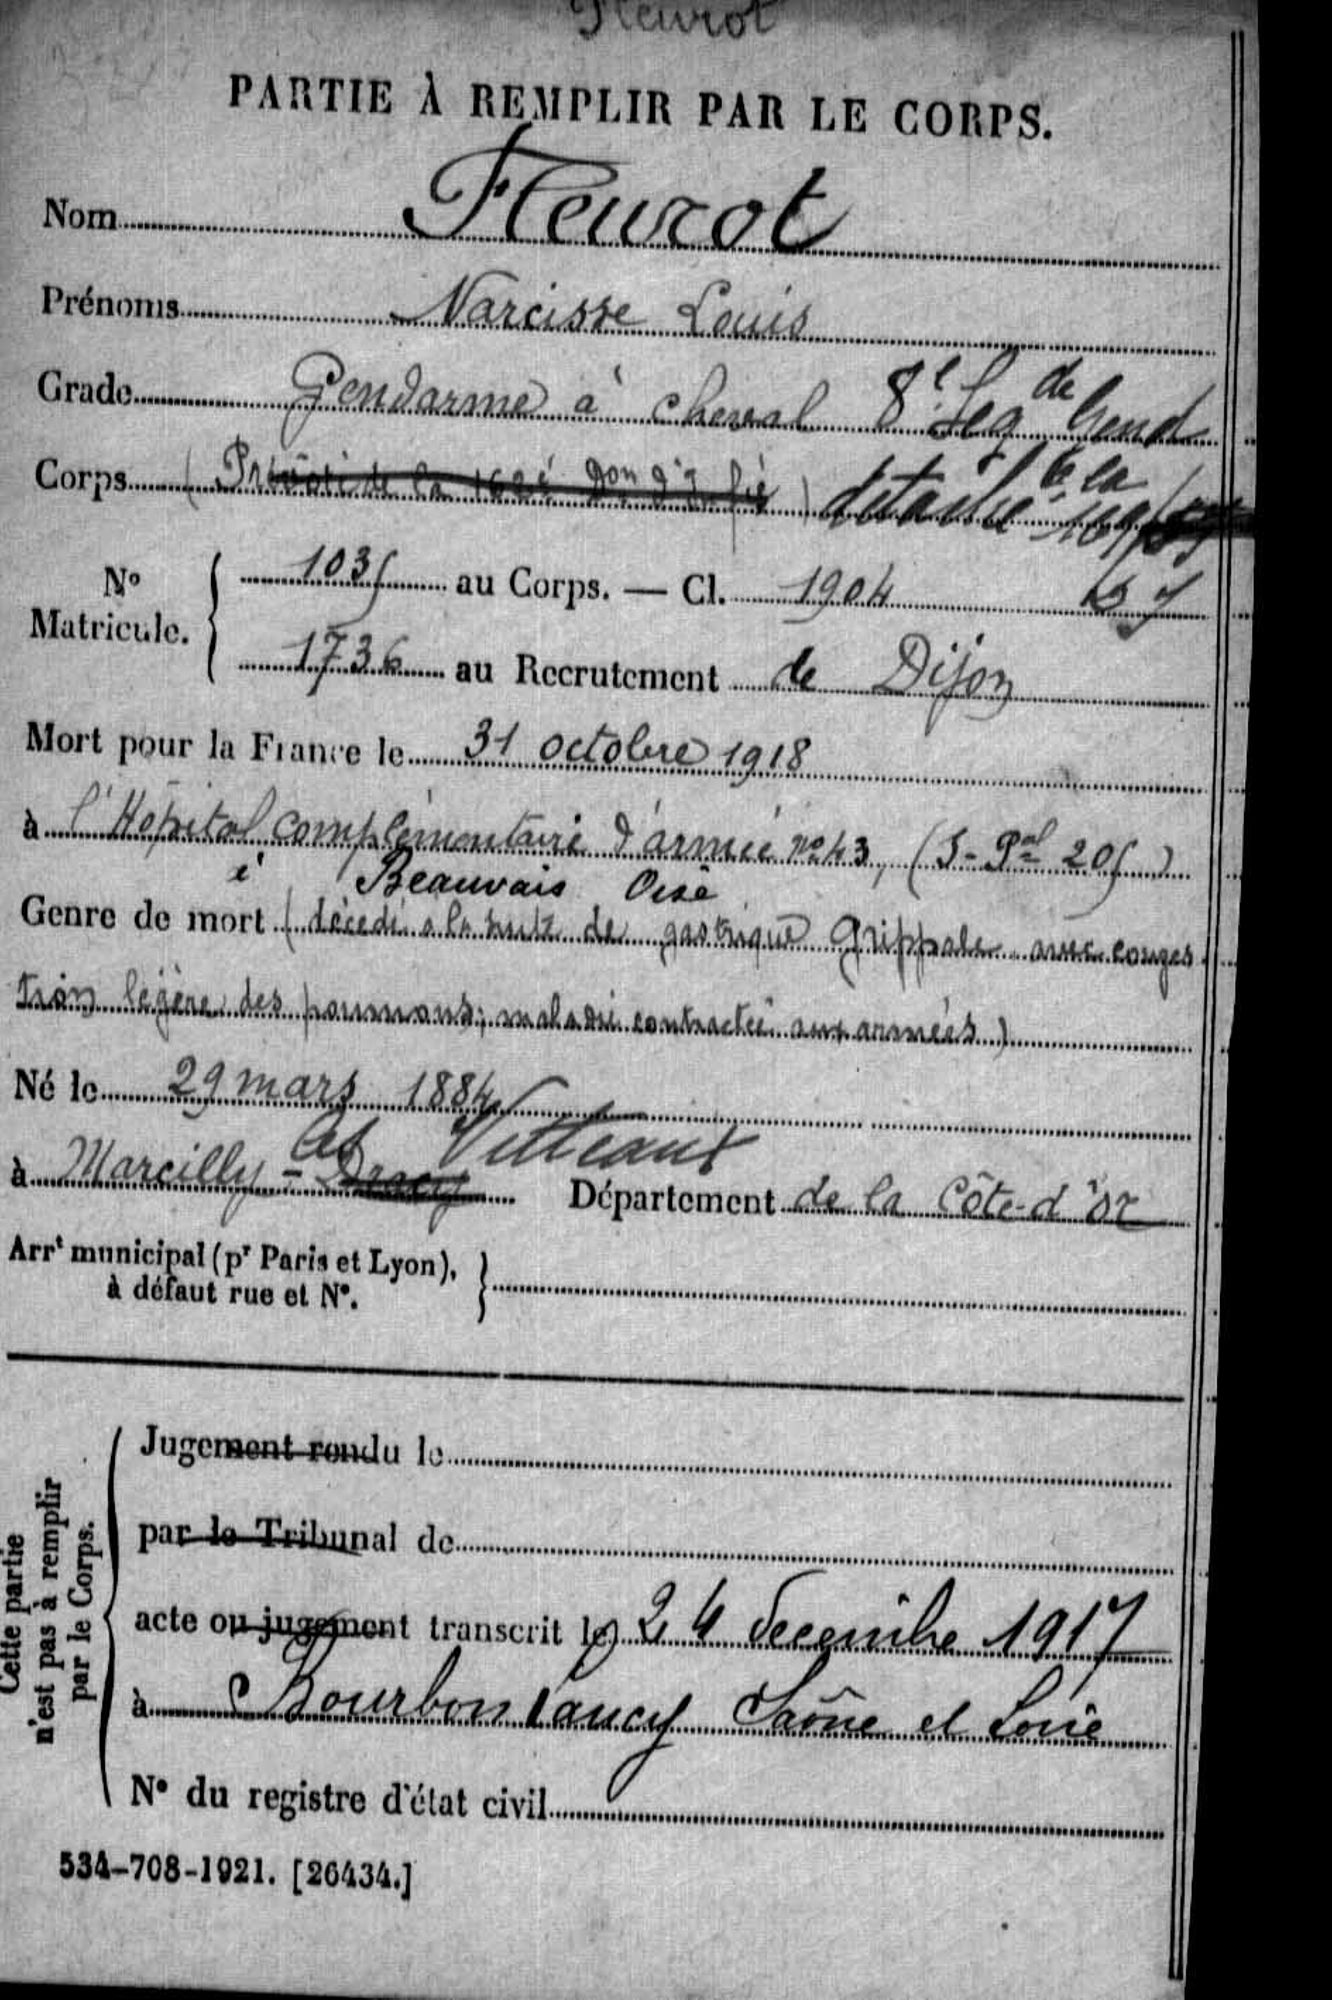 Fleurot
PARTIE À REMPLIR PAR LE CORPS.
Nom Fleurot
Prénoms Narcisse Louis
Grade Gendarme à cheval 8e Leg de Gend
Corps (Prévôté de la Don d'Infie) détaché à la
No Matricule. 1035 au Corps. — Cl. 1904
1736 au Recrutement de Dijon
Mort pour la France le 31 octobre 1918
à l'Hôpital complémentaire d'armée no 43, (S-Pal 205)
à Beauvais Oise
Genre de mort (décédé à la suite de gastrique Grippale avec conges
tion légère des poumons; maladie contractée aux armées)
Né le 29 mars 1884
à Marcilly - Dracy les Vitteaux Département de la Côte-d'Or
Arrt municipal (pr Paris et Lyon),
à défaut rue et No.
Cette partie
n'est pas à remplir
par le Corps.
Jugement rendu le
par le Tribunal de
acte ou jugement transcrit le 24 décembre 1917
à Bourbon Lancy Saône et Loire
No du registre d'état civil
534-708-1921. [26434.]